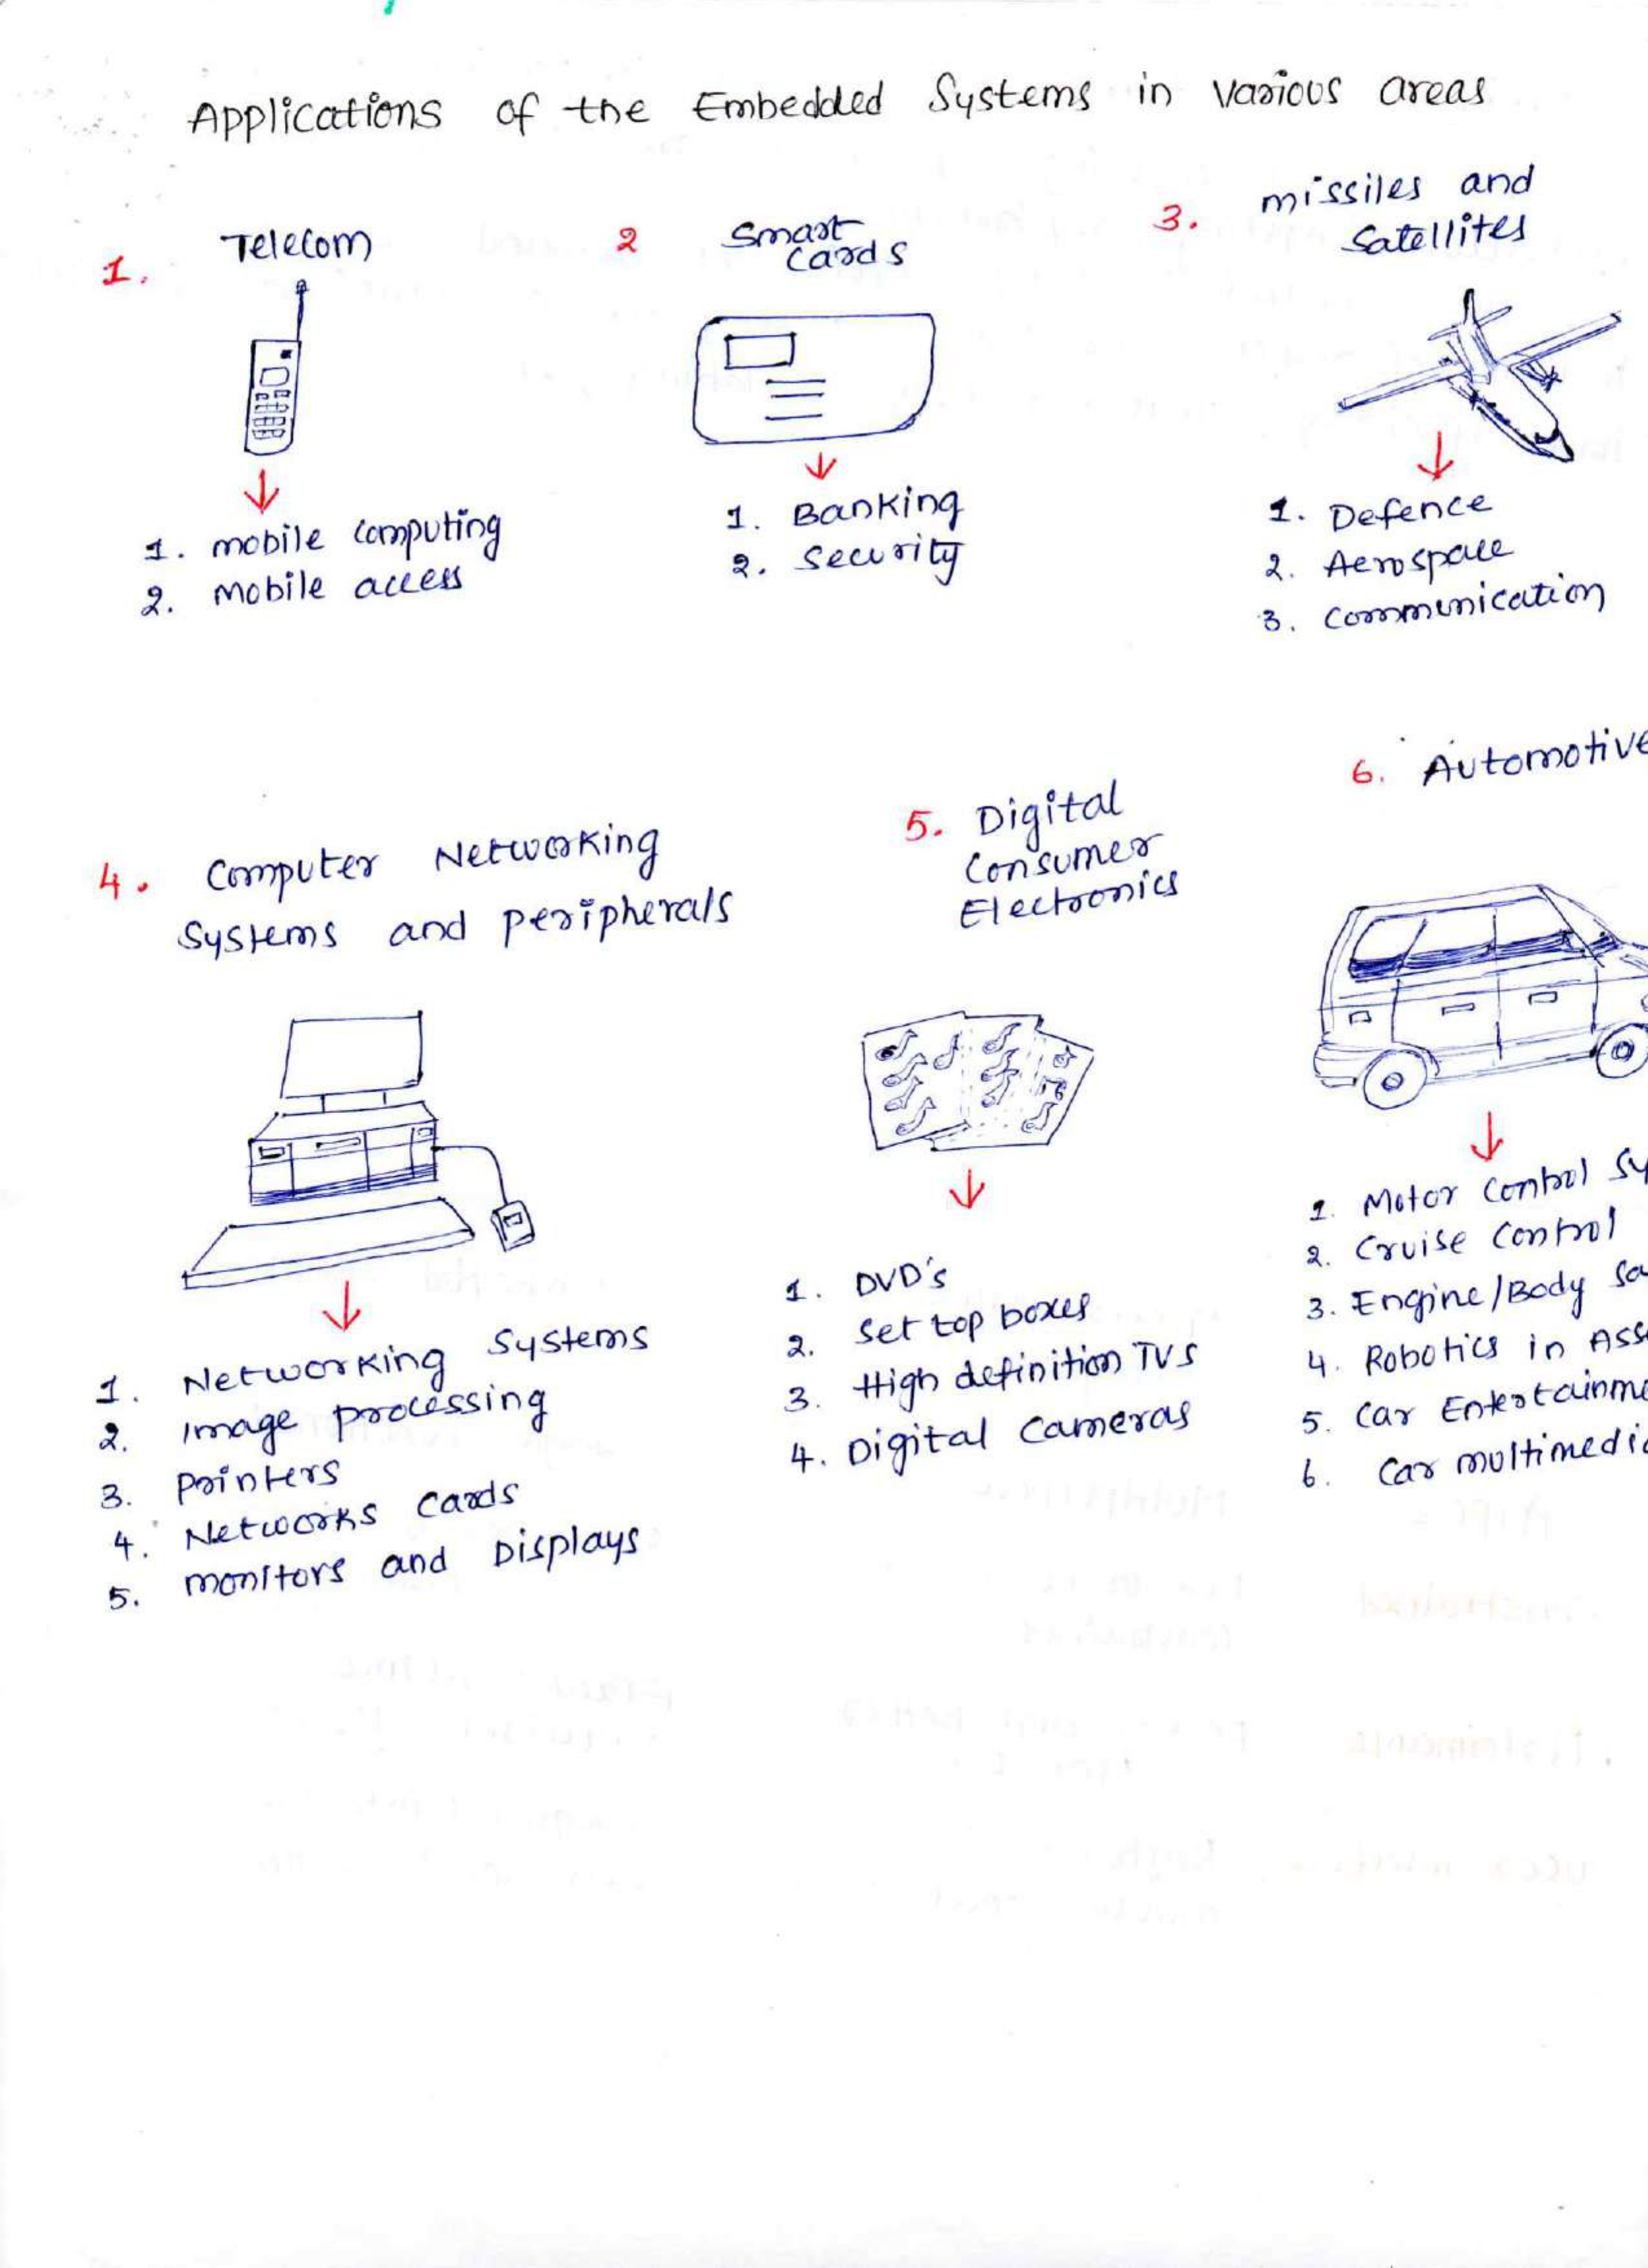 Applications of the Embedded Systems in various areas
1. Telecom
1. mobile computing
2. mobile access
2 Smart
Cards
1. Banking
2. Security
3. missiles and
Satellites
1. Defence
2. Aerospace
3. Communication
4. Computer Networking
Systems and peripherals
1. Networking Systems
2. Image processing
3. printers
4. Networks cards
5. monitors and Displays
5. Digital
Consumer
Electronics
1. DVD's
2. Set top boxes
3. High definition TVs
4. Digital Cameras
6. Automotive
1. Motor Control Sy
2. Cruise Control
3. Engine/Body
4. Robotics in Ass
5. Car Entertainme
6. Car multimedia